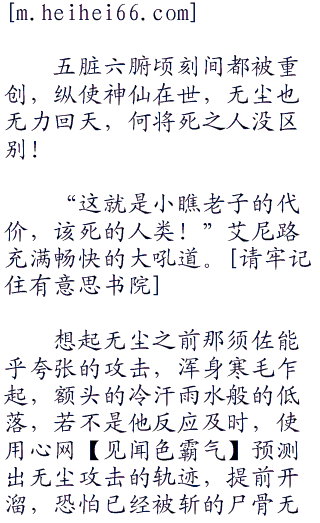 [m.heihei66.com]
五脏六腑顷刻间都被重
创，纵使神仙在世，无尘也
无力回天，何将死之人没区
别！
“这就是小瞧老子的代
价，该死的人类！”艾尼路
充满畅快的大吼道。[请牢记
住有意思书院]
想起无尘之前那须佐能
乎夸张的攻击，浑身寒毛乍
起，额头的冷汗雨水般的低
落，若不是他反应及时，使
用心网【见闻色霸气】预测
出无尘攻击的轨迹，提前开
溜，恐怕已经被斩的尸骨无